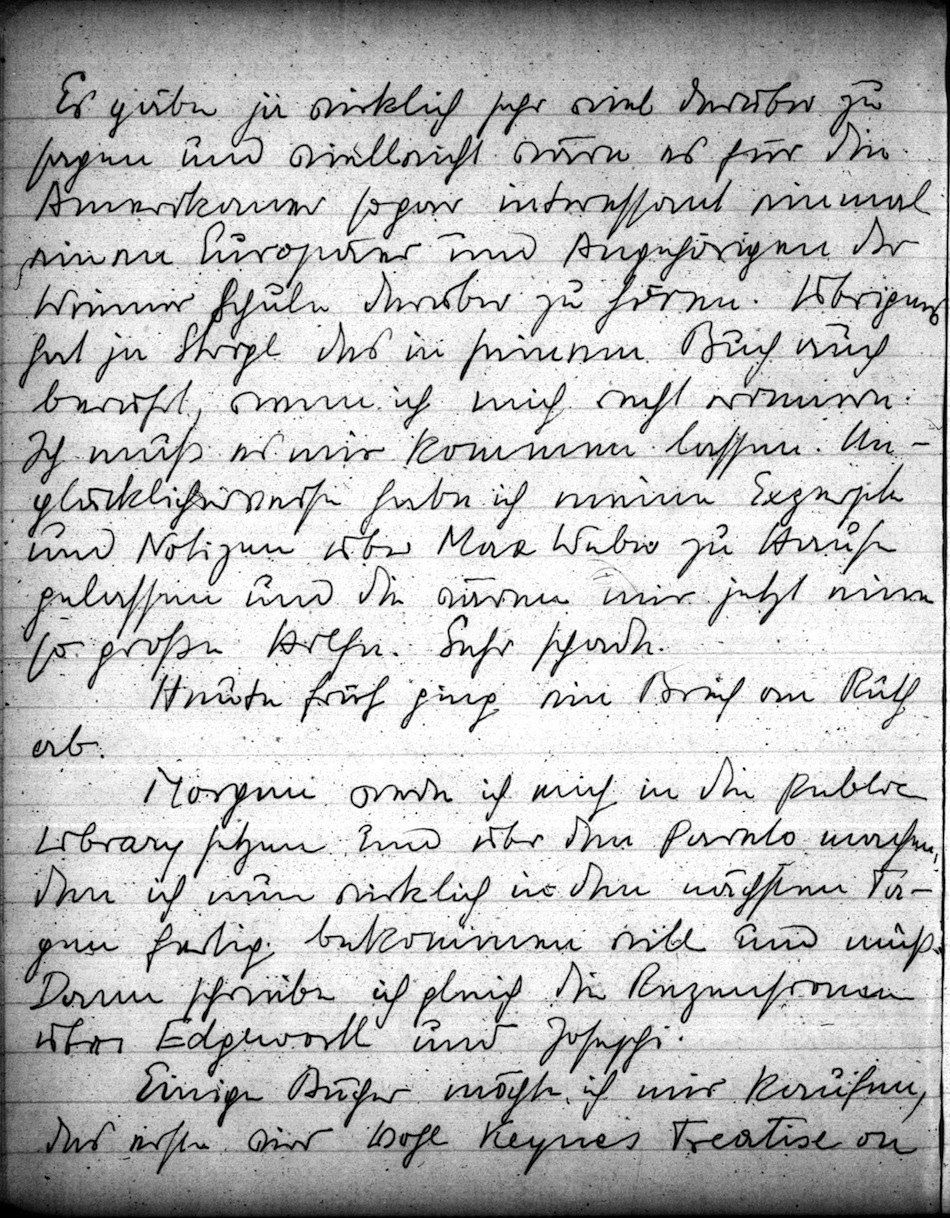 Es gäbe ja wirklich sehr viel darüber zu
sagen und vielleicht wäre es für die
Amerikaner sogar interessant einmal
einen Europäer und Angehörigen der
Wiener Schule darüber zu hören. Übrigens
hat ja Strigl das in seinem Buch auch
berührt, wenn ich mich recht erinnere.
Ich muß es mir kommen lassen. Un-
glücklicherweise habe ich meine Exzerpte
und Notizen über Max Weber zu Hause
gelassen und die wären mir jetzt eine
so große Hilfe. Sehr schade.
Heute früh ging ein Brief an Ruth
ab.
Morgen werde ich mich in die Public
Library setzen und über den Pareto machen,
den ich nun wirklich in den nächsten Ta-
gen fertig bekommen will und muß.
Dann schreibe ich gleich die Rezensionen
über Edgeworth und
Einige Bücher möchte ich mir kaufen,
das erste wird wohl Keynes Treatise on